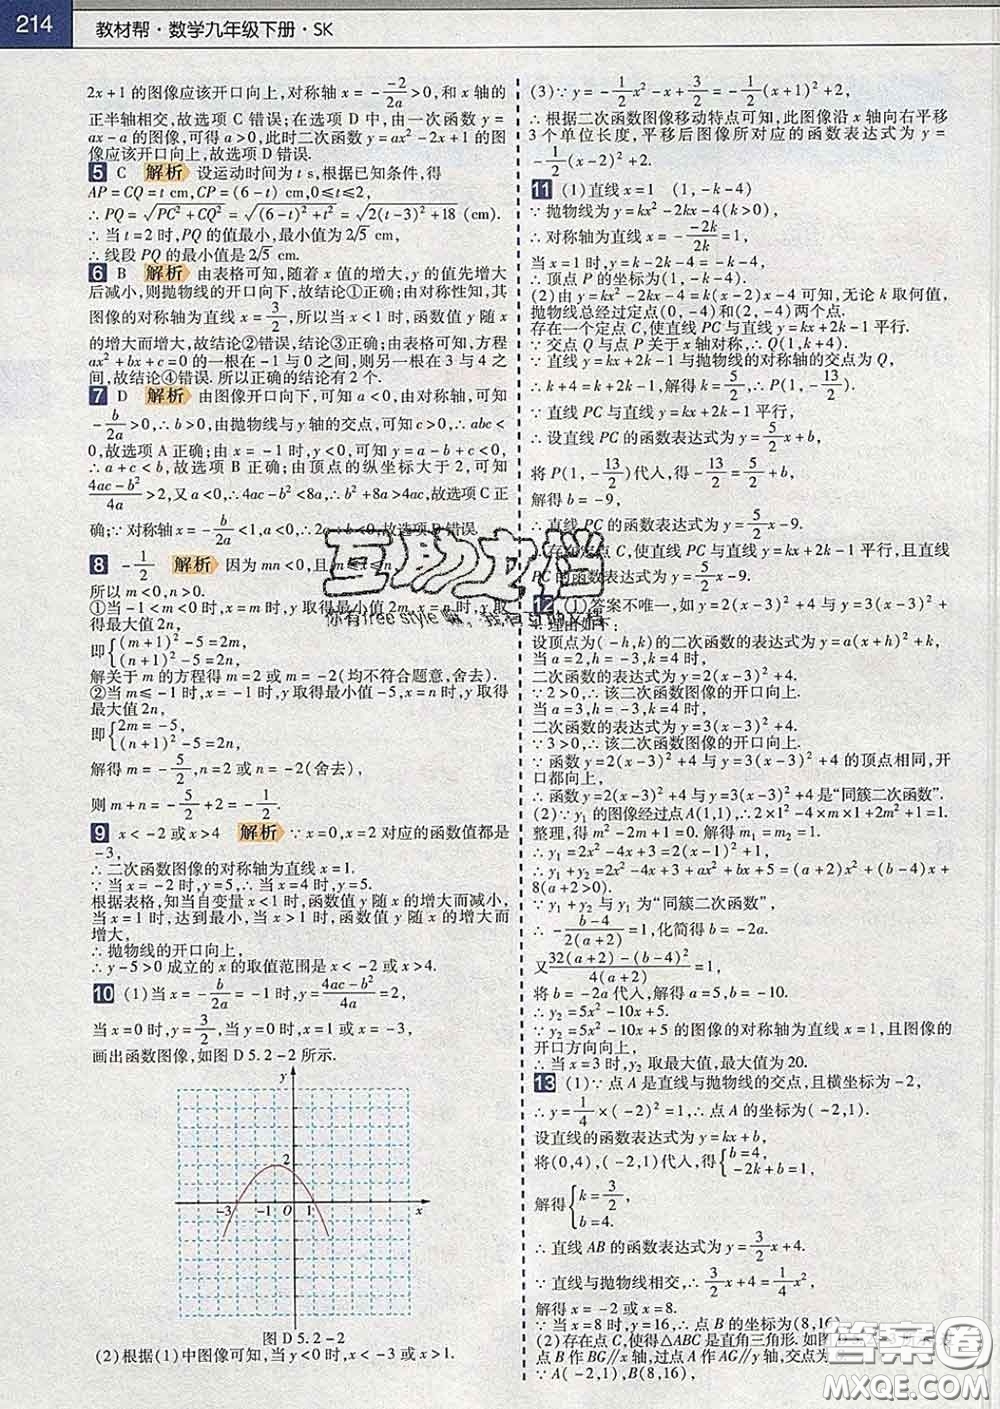 214 教材帮·数学九年级下册·SK
2x+1的图像应该开口向上,对称轴x=-\frac{-2}{2a}>0,和x轴的
正半轴相交,故选项C错误;在选项D中,由一次函数y=
ax-a的图像,可得a>0,此时二次函数y=ax²-2x+1的图
像应该开口向上,故选项D错误.
5 C 解析 设运动时间为t s,根据已知条件,得
AP=CQ=t cm,CP=(6-t) cm,0≤t≤2,
∴PQ=√(PC²+CQ²)=√((6-t)²+t²)=√(2(t-3)²+18) (cm).
∴当t=2时,PQ的值最小,最小值为2√5 cm.
∴线段PQ的最小值是2√5 cm.
6 B 解析 由表格可知,随着x值的增大,y的值先增大
后减小,则抛物线的开口向下,故结论①正确;由对称性知,其
图像的对称轴为直线x=\frac{3}{2},所以当x<1时,函数值y随x
的增大而增大,故结论②错误,结论③正确;由表格可知,方程
ax²+bx+c=0的一根在-1与0之间,则另一根在3与4之
间,故结论④错误.所以正确的结论有2个.
7 D 解析 由图像开口向下,可知a<0,由对称轴,可知
-\frac{b}{2a}>0,∴b>0,由抛物线与y轴的交点,可知c>0,∴abc<
0,故选项A正确;由图可知,当x=-1时,y=a-b+c<0,
∴a+c<b,故选项B正确;由顶点的纵坐标大于2,可知
\frac{4ac-b²}{4a}>2,又a<0,∴4ac-b²<8a,∴b²+8a>4ac,故选项C正
确;∵对称轴x=-\frac{b}{2a}<1,a<0,∴2a+b<0,故选项D错误.
8 -\frac{1}{2} 解析 因为mn<0,且m≤x≤n,
所以m<0,n>0.
①当-1<m<0时,x=m时,y取得最小值2m,x=n时,y取
得最大值2n,
即{(m+1)²-5=2m, (n+1)²-5=2n,
解关于m的方程得m=2或m=-2(均不符合题意,舍去).
②当m≤-1时,x=m时,y取得最小值-5,x=n时,y取得
最大值2n,
即{2m=-5, (n+1)²-5=2n,
解得m=-\frac{5}{2},n=2或n=-2(舍去),
则m+n=-\frac{5}{2}+2=-\frac{1}{2}.
9 x<-2或x>4 解析 ∵x=0,x=2对应的函数值都是
-3,
∴二次函数图像的对称轴为直线x=1.
∵当x=-2时,y=5,∴当x=4时,y=5.
根据表格,知当自变量x<1时,函数值y随x的增大而减小,
当x=1时,达到最小,当x>1时,函数值y随x的增大而
增大,
∴抛物线的开口向上,
∴y-5>0成立的x的取值范围是x<-2或x>4.
10 (1)当x=-\frac{b}{2a}=-1时,y=\frac{4ac-b²}{4a}=2,
当x=0时,y=\frac{3}{2},当y=0时,x=1或x=-3,
画出函数图像,如图D5.2-2所示.
y
2
-3 -1 O 1 x
图D5.2-2
(2)根据(1)中图像可知,当y<0时,x<-3或x>1.
(3)∵y=-\frac{1}{2}x²-x+\frac{3}{2}=-\frac{1}{2}(x+1)²+2,
∴根据二次函数图像移动特点可知,此图像沿x轴向右平移
3个单位长度,平移后图像所对应的函数表达式为y=
-\frac{1}{2}(x-2)²+2.
11 (1)直线x=1 (1,-k-4)
∵抛物线为y=kx²-2kx-4(k>0),
∴对称轴为直线x=-\frac{-2k}{2k}=1,
当x=1时,y=k-2k-4=-k-4,
∴顶点P的坐标为(1,-k-4).
(2)由y=kx²-2kx-4=k(x-2)x-4可知,无论k取何值,
抛物线总经过定点(0,-4)和(2,-4)两个点.
存在一个定点C,使直线PC与直线y=kx+2k-1平行.
∵交点Q与点P关于x轴对称,∴Q(1,k+4).
∵直线y=kx+2k-1与抛物线的对称轴的交点为Q,
∴k+4=k+2k-1,解得k=\frac{5}{2},∴P(1,-\frac{13}{2}).
∵直线PC与直线y=kx+2k-1平行,
∴设直线PC的函数表达式为y=\frac{5}{2}x+b,
将P(1,-\frac{13}{2})代入,得-\frac{13}{2}=\frac{5}{2}+b,
解得b=-9,
∴直线PC的函数表达式为y=\frac{5}{2}x-9.
∴存在定点C,使直线PC与直线y=kx+2k-1平行,且直线
PC的函数表达式为y=\frac{5}{2}x-9.
12 (1)答案不唯一,如y=2(x-3)²+4与y=3(x-3)²+
4.理由如下:
设顶点为(-h,k)的二次函数的表达式为y=a(x+h)²+k,
当a=2,h=-3,k=4时,
二次函数的表达式为y=2(x-3)²+4.
∵2>0,∴该二次函数图像的开口向上.
当a=3,h=-3,k=4时,
二次函数的表达式为y=3(x-3)²+4.
∵3>0,∴该二次函数图像的开口向上.
∵函数y=2(x-3)²+4与y=3(x-3)²+4的顶点相同,开
口都向上,
∴函数y=2(x-3)²+4与y=3(x-3)²+4是“同簇二次函数”.
(2)∵y₁的图像经过点A(1,1),∴2×1²-4×m×1+2m²+1=1.
整理,得m²-2m+1=0.解得m₁=m₂=1.
∴y₁=2x²-4x+3=2(x-1)²+1,
∴y₁+y₂=2x²-4x+3+ax²+bx+5=(a+2)x²+(b-4)x+
8(a+2>0).
∵y₁+y₂与y₁为“同簇二次函数”,
∴-\frac{b-4}{2(a+2)}=1,化简得b=-2a.
又\frac{32(a+2)-(b-4)²}{4(a+2)}=1,
将b=-2a代入,解得a=5,b=-10.
∴y₂=5x²-10x+5.
∵y₂=5x²-10x+5的图像的对称轴为直线x=1,且图像的
开口方向向上,
∴当x=3时,y₂取最大值,最大值为20.
13 (1)∵点A是直线与抛物线的交点,且横坐标为-2,
∴y=\frac{1}{4}×(-2)²=1,∴点A的坐标为(-2,1).
设直线的函数表达式为y=kx+b,
将(0,4),(-2,1)代入,得{b=4, -2k+b=1,
解得{k=\frac{3}{2}, b=4.
∴直线AB的函数表达式为y=\frac{3}{2}x+4.
∵直线与抛物线相交,∴\frac{3}{2}x+4=\frac{1}{4}x²,
解得x=-2或x=8.
∴当x=8时,y=16,∴点B的坐标为(8,16).
(2)存在点C,使得△ABC是直角三角形.如图
点B作BG//x轴,过点A作AG//y轴,交点为
∵A(-2,1),B(8,16),
互助文档
你有free style嘛,我有互助文档
答案圈
MXQE.COM